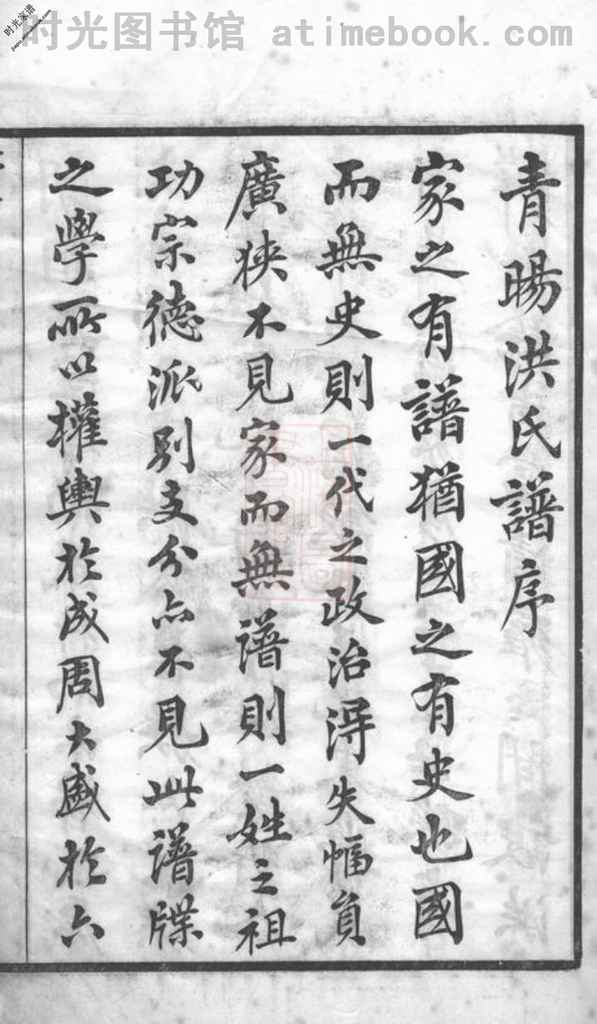 时光图书馆 atimebook.com
时光家谱
青暘洪氏譜序
家之有譜猶國之有史也國
而無史則一代之政治得失幅員
廣狹不見家而無譜則一姓之祖
功宗德派別支分亦不見此譜牒
之學所以權輿於成周大盛於六